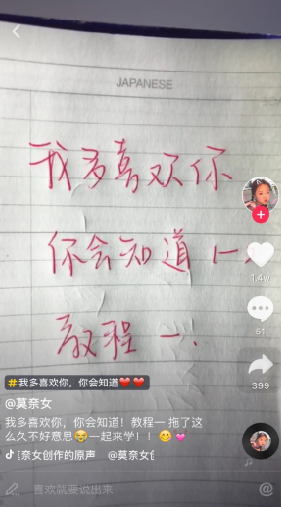 JAPANESE
我多喜欢你
你会知道
教程一.
1.4w
51
399
#我多喜欢你，你会知道❤️❤️
@莫奈女
我多喜欢你，你会知道！教程一 拖了这
么久不好意思😂一起来学！！😋💓
女创作的原声 @莫奈女
喜欢就要说出来
@